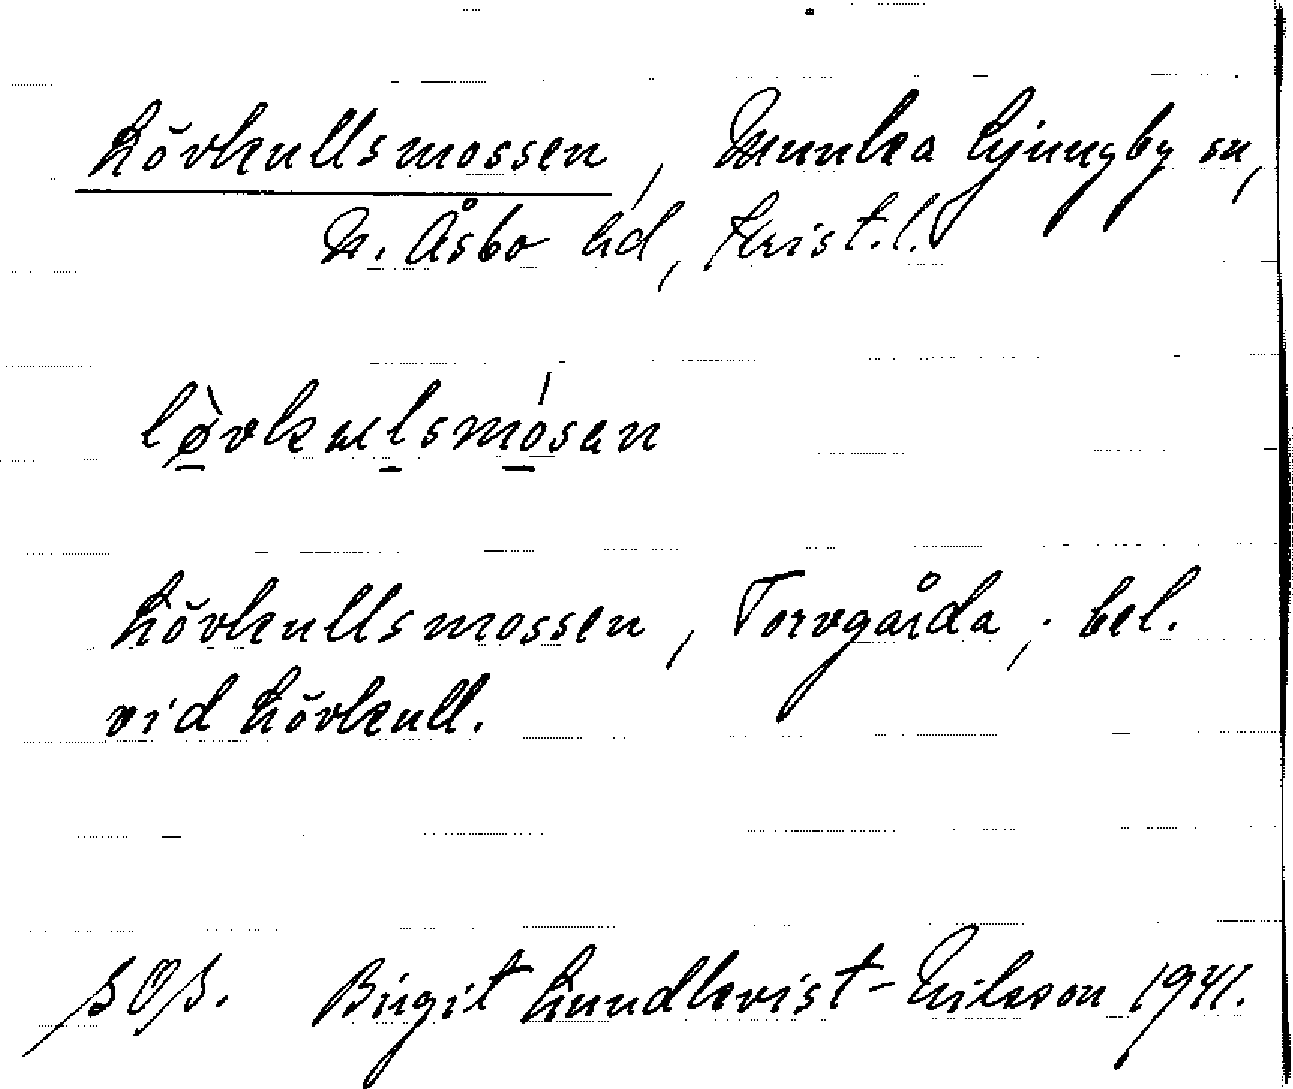 Lövkullsmossen, Munka Ljungby sn,
N. Åsbo hd, Krist. l.
lø̀vkulsmósan
Lövkullsmossen, Torvgårda, bel.
vid Lövkull.
Birgit Lundkvist-Nilsson 1941.